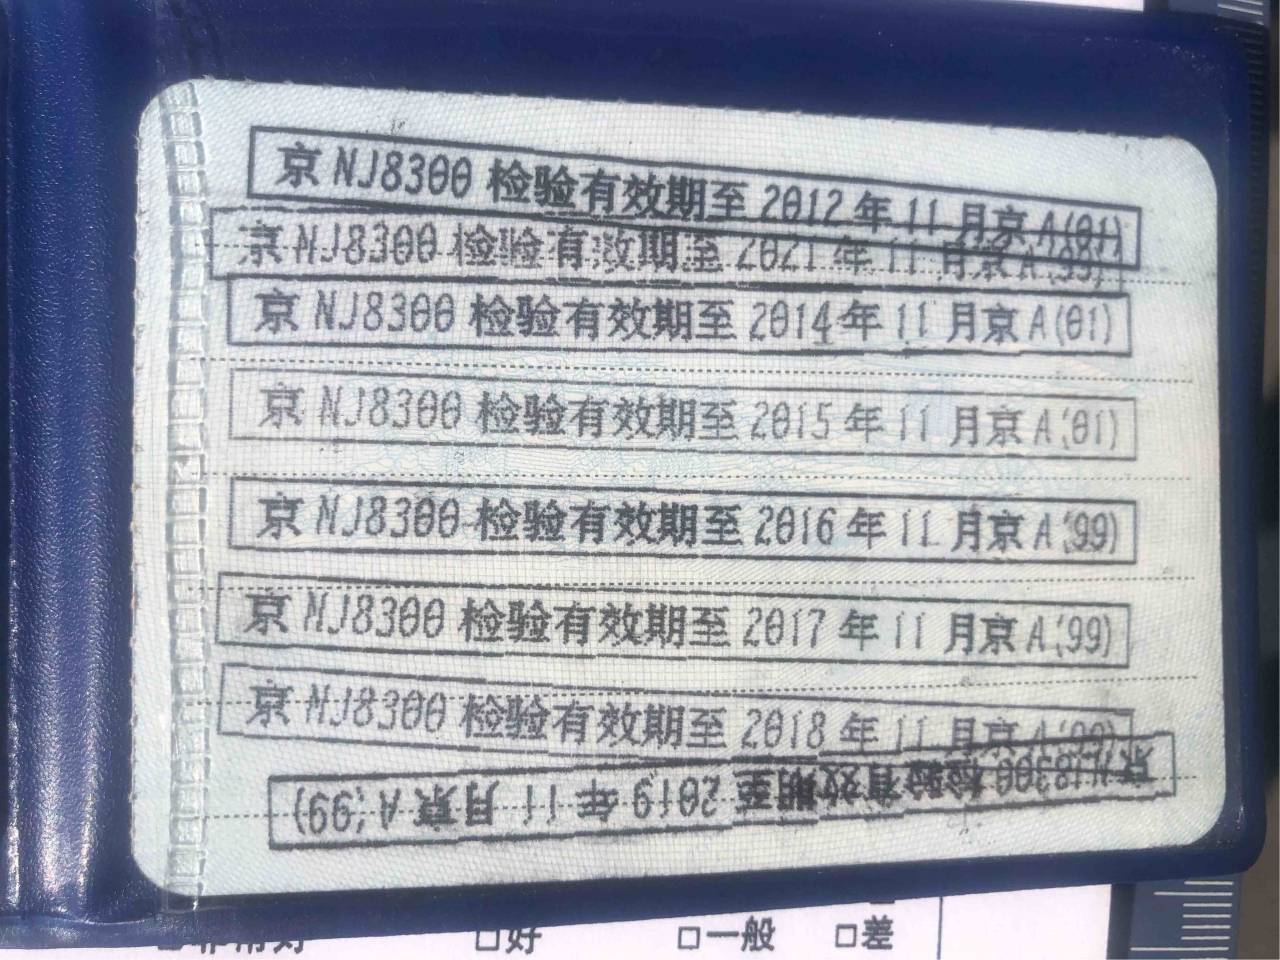 京NJ8300 检验有效期至2012年11月京A(01)
京NJ8300 检验有效期至2021年11月京A(99)
京NJ8300 检验有效期至2014年11月京A(01)
京NJ8300 检验有效期至2015年11月京A(01)
京NJ8300 检验有效期至2016年11月京A(99)
京NJ8300 检验有效期至2017年11月京A(99)
京NJ8300 检验有效期至2018年11月京A(99)
京NJ8300 检验有效期至2019年11月京A(99)
□好 □一般 □差